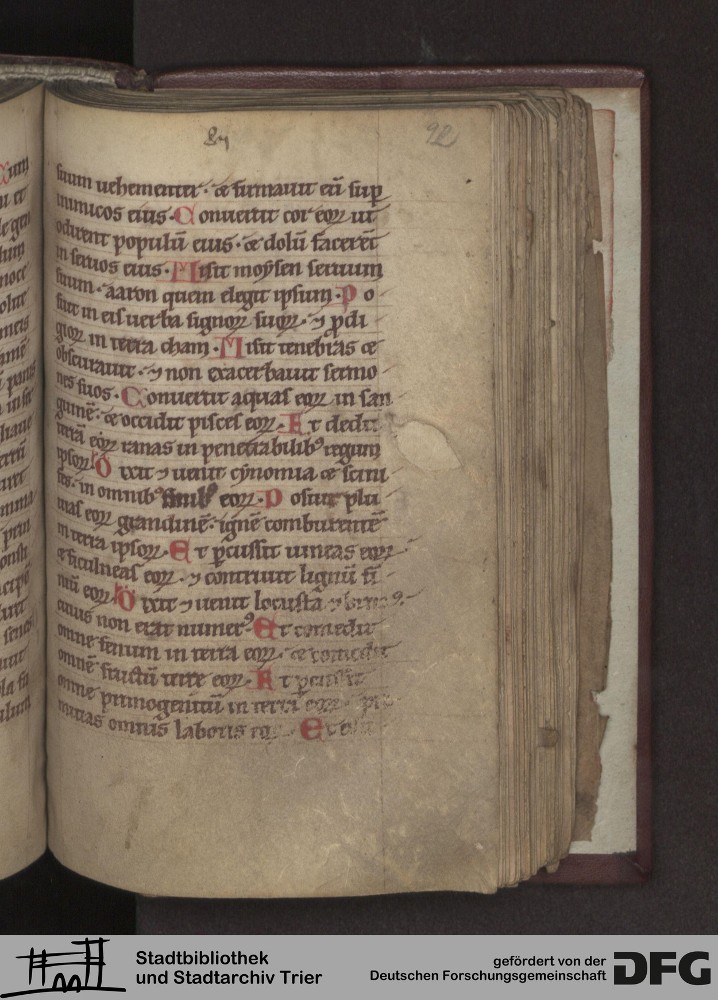 92
suum uehementer· ⁊ firmauit eū suꝑ
inimicos eius· Conuertit cor eoꝝ ut
odirent populū eius· ⁊ dolū facerēt
in seruos eius· Misit moẏsen seruum
suum· aaron quem elegit ipsum· Po
suit in eis uerba signoꝝ suoꝝ· ⁊ ꝓdi
gioꝝ in terra cham· Misit tenebras ⁊
obscurauit· ⁊ non exacerbauit sermo
nes suos· Conuertit aquas eoꝝ in san
guinē· ⁊ occidit pisces eoꝝ· Et dedit
terrā eoꝝ ranas in penetrabilibꝰ regum
ipsoꝝ· Dixit ⁊ uenit cẏnomia ⁊ scini
fes· in omnibꝰ finibꝰ eoꝝ· Posuit plu
uias eoꝝ grandinē· ignē comburentē
in terra ipsoꝝ· Et ꝑcussit uineas eoꝝ
⁊ ficulneas eoꝝ· ⁊ contriuit lignū fi
niū eoꝝ· Dixit ⁊ uenit locusta ⁊
cuius non erat numerꝰ· Et comedit
omne fenum in terra eoꝝ· ⁊ comedit
omnē fructū terre eoꝝ· Et ꝑcussit
omne primogenitū in terra eoꝝ· pri
mitias omnis laboris Et
Stadtbibliothek
und Stadtarchiv Trier
gefördert von der
Deutschen Forschungsgemeinschaft
DFG